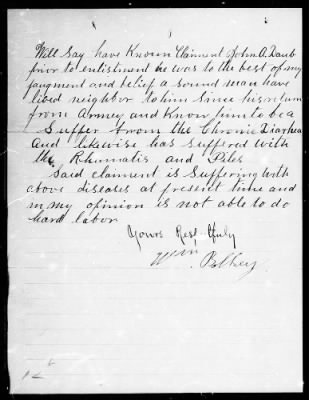 Will Say have Known Claiment John A. Daub
prior to enlistment he was to the best of my
judgment and belief a Sound man have
lived neighbor to him Since his return
from Armey and Know him to be a
Suffer from the Chronic Diarhea
And likewise has Suffered with
the Rhumatis and Piles
Said claiment is Suffering with
above diseases at present time and
in my opinion is not able to do
hard labor
Yours Respt fully
Wm